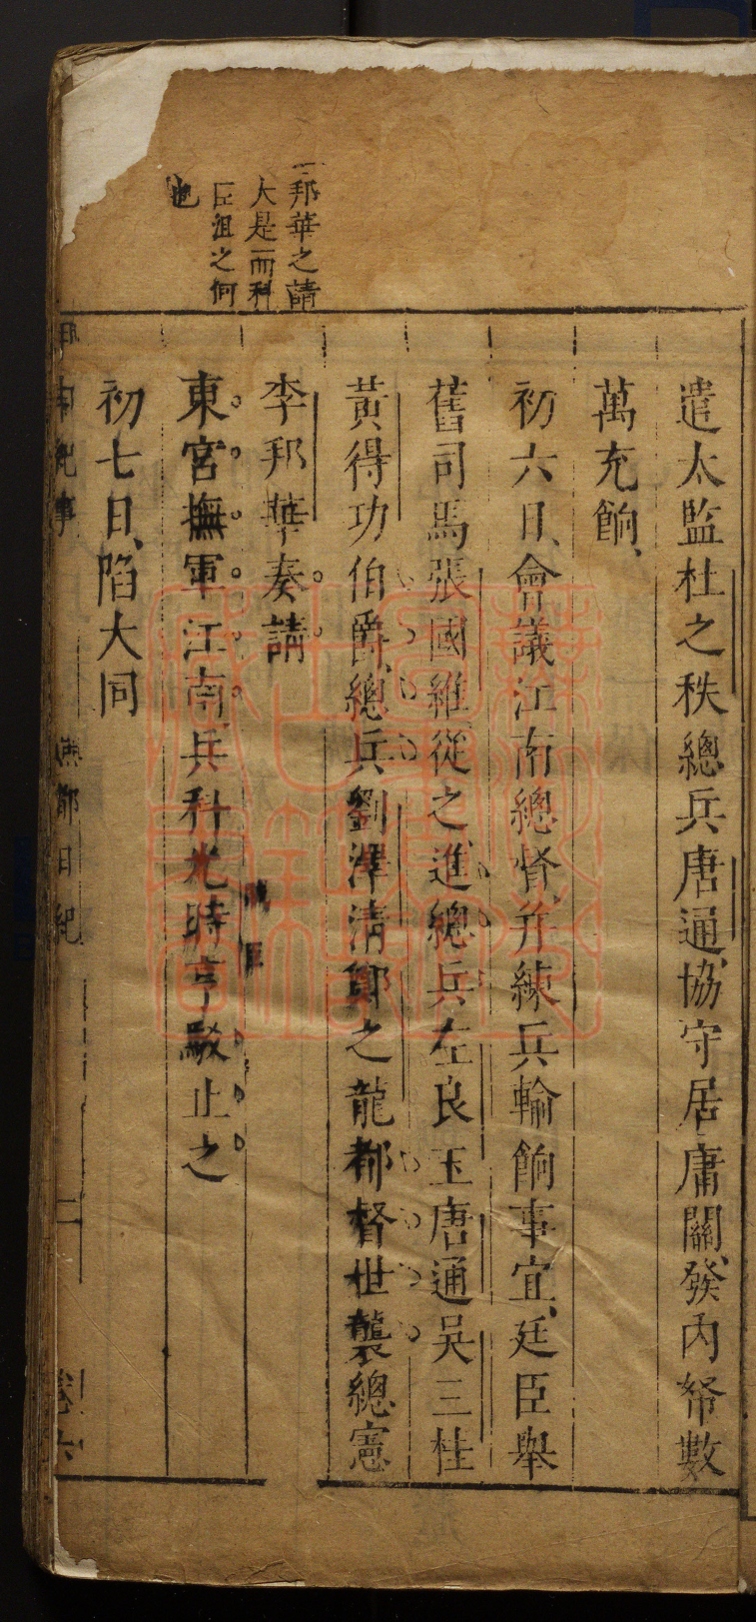 邦華之請
大是而科
臣沮之何
也
遣太監杜之秩總兵唐通、協守居庸關、發內帑數
萬充餉、
初六日、會議江南總督、并練兵輸餉事宜、廷臣舉
舊司馬張國維從之、進總兵左良玉唐通吳三桂
黃得功伯爵、總兵劉澤清鄭之龍都督世襲總憲
李邦華奏請
東宮撫軍江南、兵科光時亨駁止之
初七日、陷大同
甲申紀事
燕都日紀
二
卷六